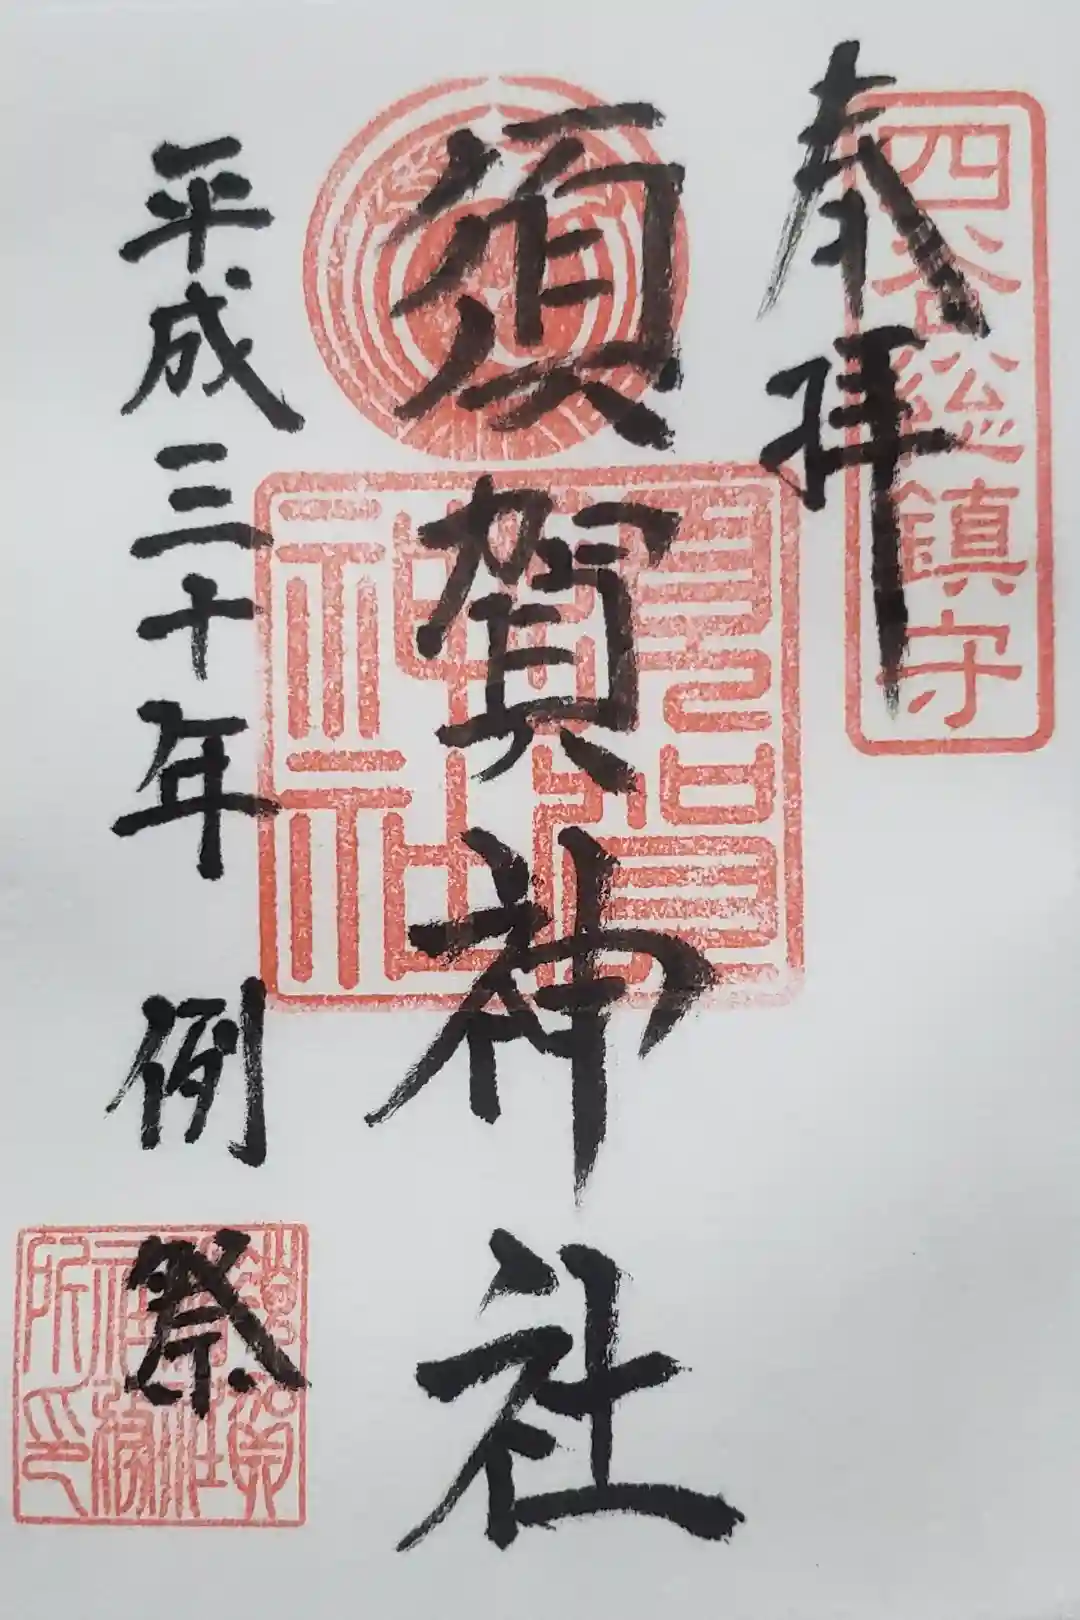 奉拝
四谷總鎮守
須賀神社
須賀神社
平成三十年 例祭
須賀神社社務所印